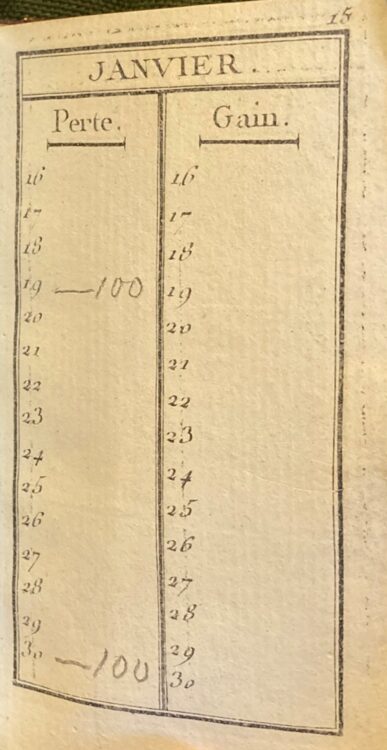 15
JANVIER.
Perte. Gain.
16 16
17 17
18 18
19 —100 19
20 20
21 21
22 22
23 23
24 24
25 25
26 26
27 27
28 28
29 29
30 —100 30